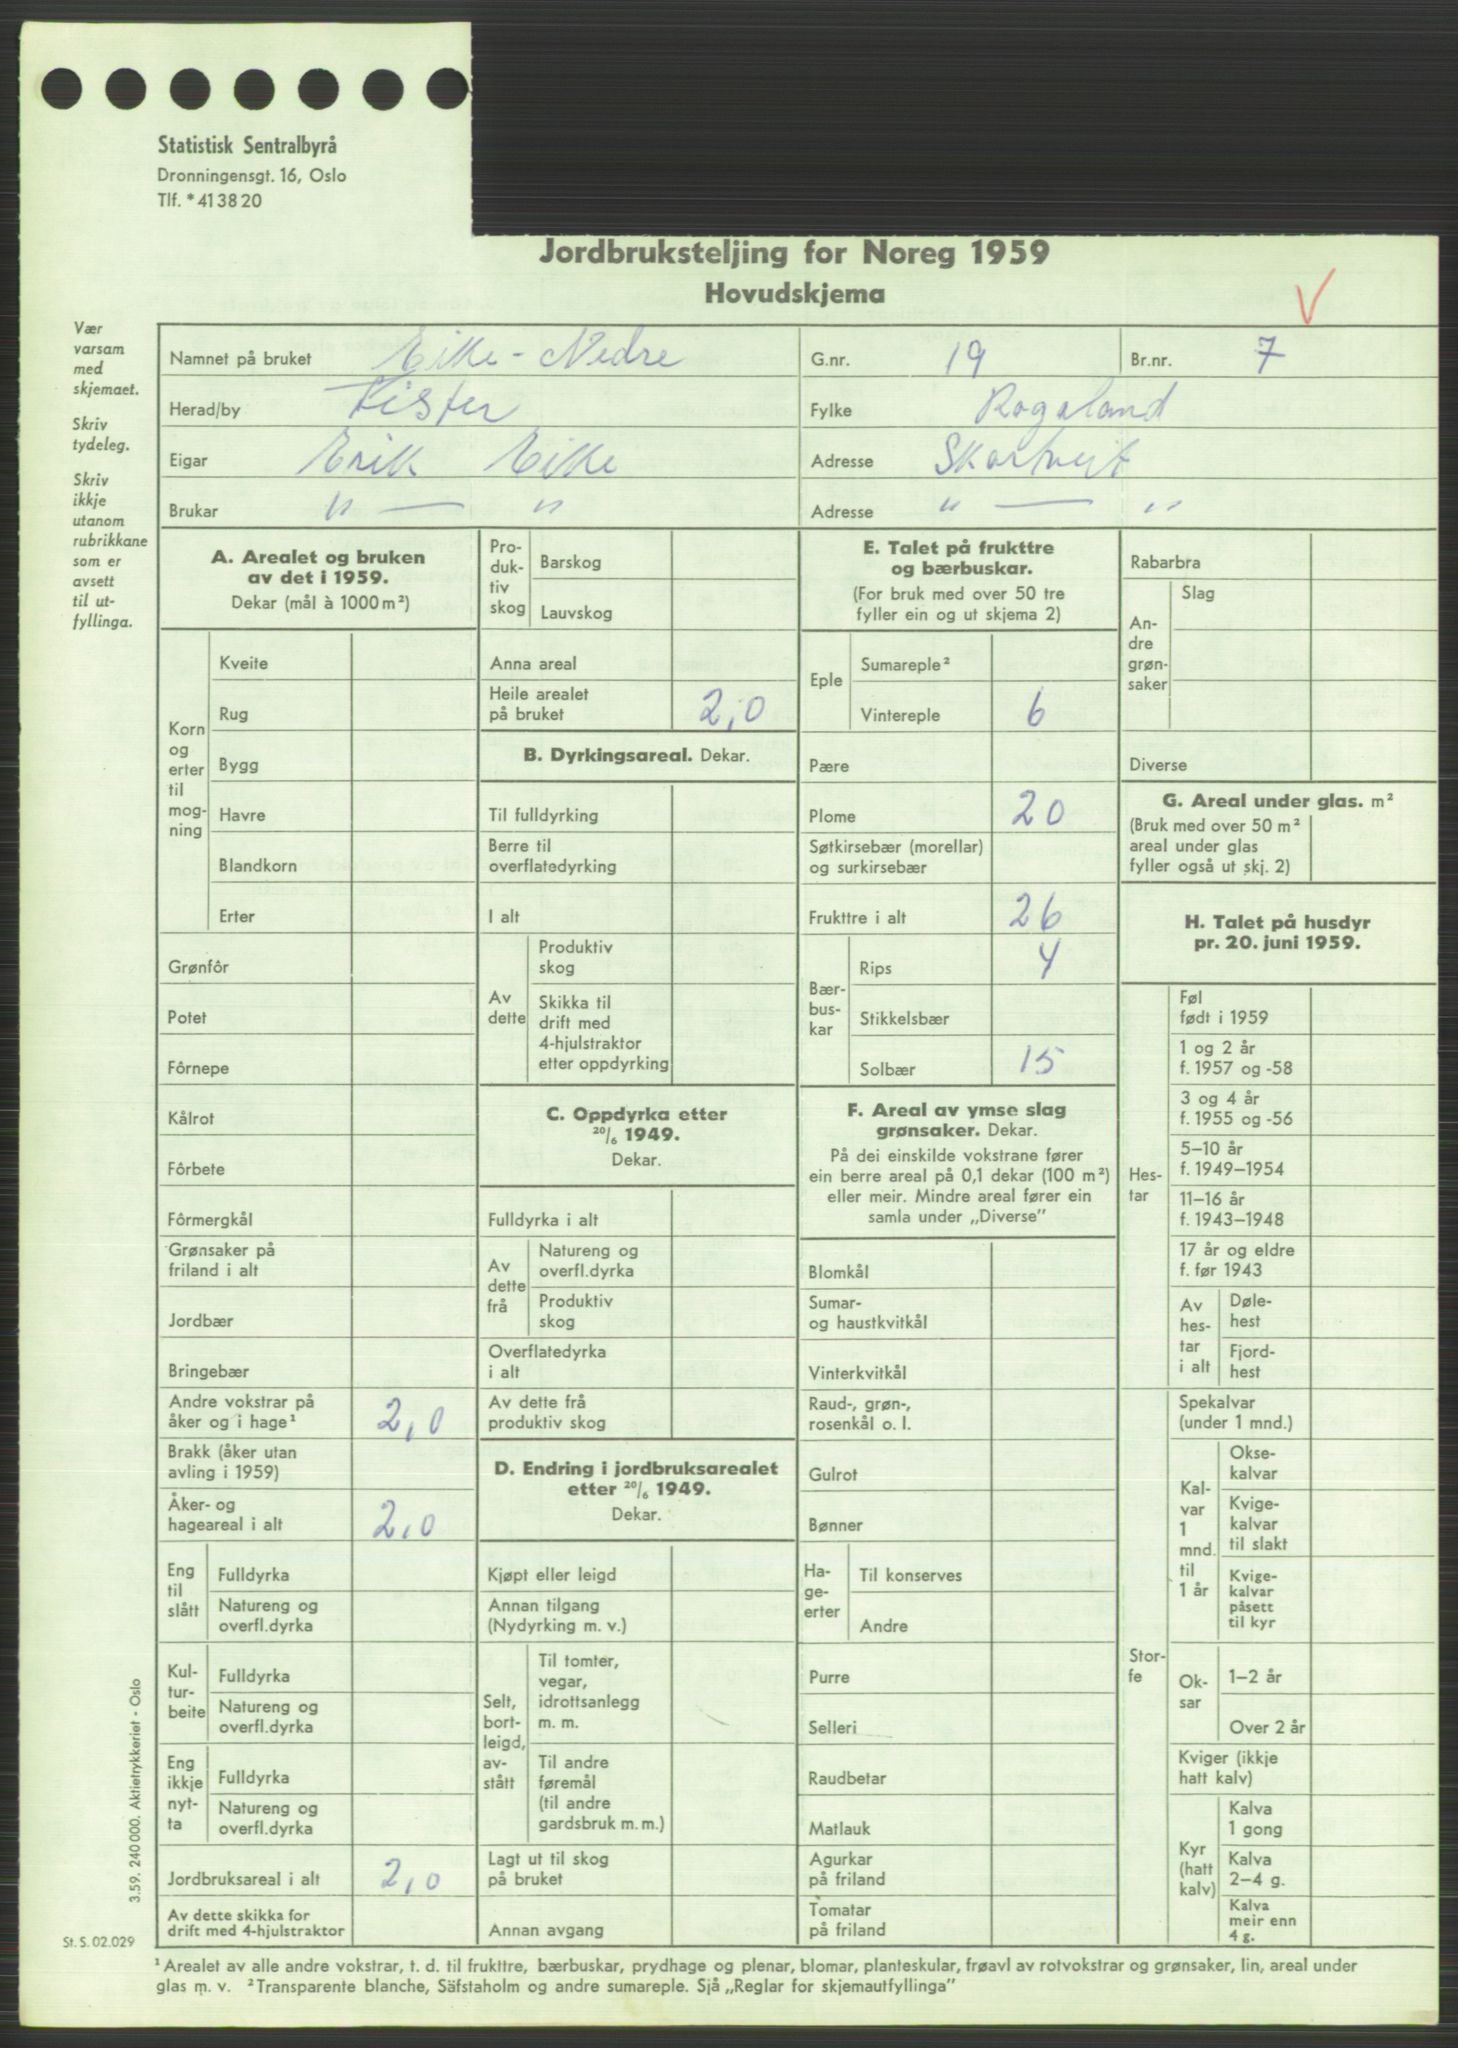 Statistisk Sentralbyrå
Dronningensgt. 16, Oslo
Tlf. *41 38 20
Jordbruksteljing for Noreg 1959
Hovudskjema
V
Vær
varsam
med
skjemaet.
Skriv
tydeleg.
Skriv
ikkje
utanom
rubrikkane
som er
avsett
til ut-
fyllinga.
Namnet på bruket Eike - Nedre G.nr. 19 Br.nr. 7
Herad/by Fister Fylke Rogaland
Eigar Erik Eike Adresse Skartveit
Brukar " — " Adresse " — "
A. Arealet og bruken
av det i 1959.
Dekar (mål à 1000 m²)
Korn
og
erter
til
mog-
ning
Kveite
Rug
Bygg
Havre
Blandkorn
Erter
Grønfôr
Potet
Fôrnepe
Kålrot
Fôrbete
Fôrmergkål
Grønsaker på
friland i alt
Jordbær
Bringebær
Andre vokstrar på
åker og i hage¹ 2,0
Brakk (åker utan
avling i 1959)
Åker- og
hageareal i alt 2,0
Eng
til
slått
Fulldyrka
Natureng og
overfl.dyrka
Kul-
tur-
beite
Fulldyrka
Natureng og
overfl.dyrka
Eng
ikkje
nyt-
ta
Fulldyrka
Natureng og
overfl.dyrka
Jordbruksareal i alt 2,0
Av dette skikka for
drift med 4-hjulstraktor
Pro-
duk-
tiv
skog
Barskog
Lauvskog
Anna areal
Heile arealet
på bruket 2,0
B. Dyrkingsareal. Dekar.
Til fulldyrking
Berre til
overflatedyrking
I alt
Av
dette
Produktiv
skog
Skikka til
drift med
4-hjulstraktor
etter oppdyrking
C. Oppdyrka etter
20/6 1949.
Dekar.
Fulldyrka i alt
Av
dette
frå
Natureng og
overfl.dyrka
Produktiv
skog
Overflatedyrka
i alt
Av dette frå
produktiv skog
D. Endring i jordbruksarealet
etter 20/6 1949.
Dekar.
Kjøpt eller leigd
Annan tilgang
(Nydyrking m. v.)
Selt,
bort-
leigd,
av-
stått
Til tomter,
vegar,
idrottsanlegg
m. m.
Til andre
føremål
(til andre
gardsbruk m. m.)
Lagt ut til skog
på bruket
Annan avgang
E. Talet på frukttre
og bærbuskar.
(For bruk med over 50 tre
fyller ein og ut skjema 2)
Eple
Sumareple²
Vintereple 6
Pære
Plome 20
Søtkirsebær (morellar)
og surkirsebær
Frukttre i alt 26
Bær-
bus-
kar
Rips 4
Stikkelsbær
Solbær 15
F. Areal av ymse slag
grønsaker. Dekar.
På dei einskilde vokstrane fører
ein berre areal på 0,1 dekar (100 m²)
eller meir. Mindre areal fører ein
samla under „Diverse”
Blomkål
Sumar-
og haustkvitkål
Vinterkvitkål
Raud-, grøn-,
rosenkål o. l.
Gulrot
Bønner
Ha-
ge-
erter
Til konserves
Andre
Purre
Selleri
Raudbetar
Matlauk
Agurkar
på friland
Tomatar
på friland
Rabarbra
An-
dre
grøn-
saker
Slag
Diverse
G. Areal under glas. m²
(Bruk med over 50 m²
areal under glas
fyller også ut skj. 2)
H. Talet på husdyr
pr. 20. juni 1959.
Hes-
tar
Føl
født i 1959
1 og 2 år
f. 1957 og -58
3 og 4 år
f. 1955 og -56
5–10 år
f. 1949–1954
11–16 år
f. 1943–1948
17 år og eldre
f. før 1943
Av
hes-
tar
i alt
Døle-
hest
Fjord-
hest
Stor-
fe
Spekalvar
(under 1 mnd.)
Kal-
var
1
mnd.
til
1 år
Okse-
kalvar
Kvige-
kalvar
til slakt
Kvige-
kalvar
påsett
til kyr
Ok-
sar
1–2 år
Over 2 år
Kviger (ikkje
hatt kalv)
Kyr
(hatt
kalv)
Kalva
1 gong
Kalva
2–4 g.
Kalva
meir enn
4 g.
3.59. 240 000. Aktietrykkeriet - Oslo
St. S. 02.029
¹ Arealet av alle andre vokstrar, t. d. til frukttre, bærbuskar, prydhage og plenar, blomar, planteskular, frøavl av rotvokstrar og grønsaker, lin, areal under
glas m. v. ² Transparente blanche, Säfstaholm og andre sumareple. Sjå „Reglar for skjemautfyllinga”